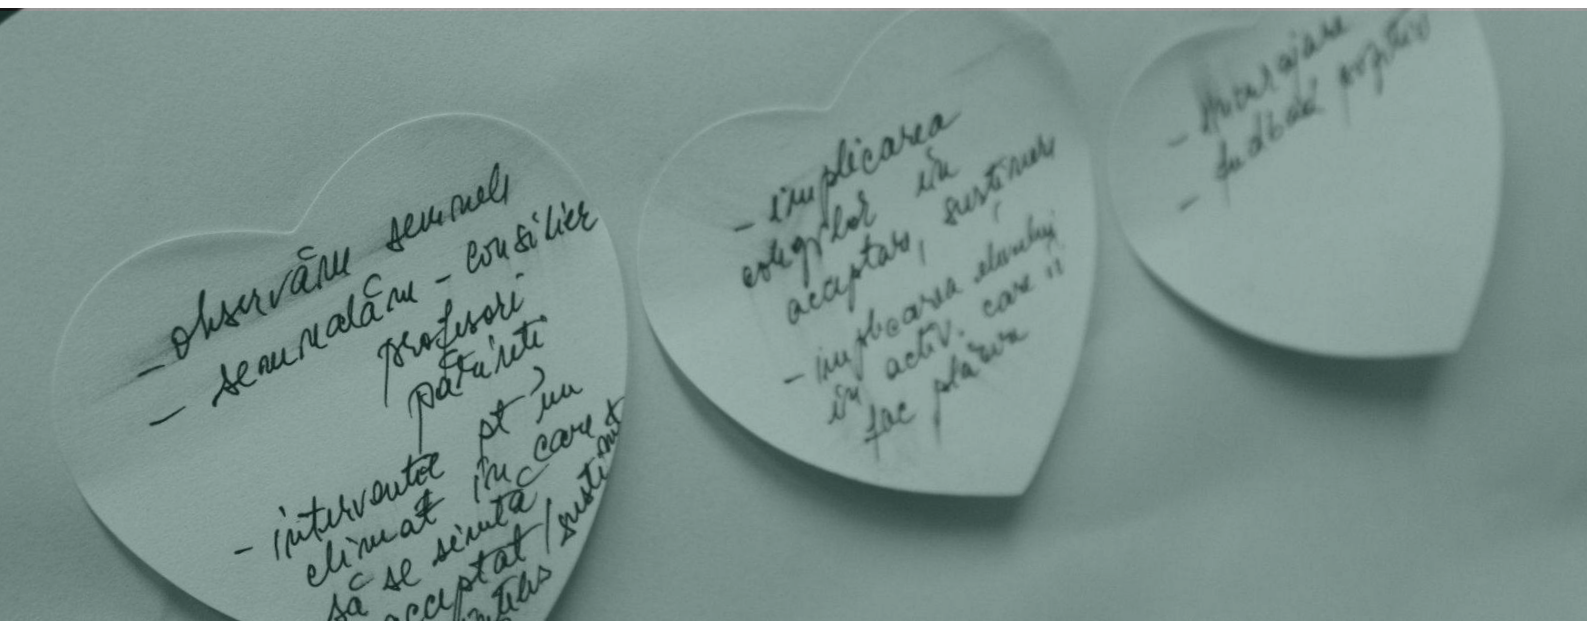 - observăm semnele
- semnalăm - consilier
profesori
părinți
- intervenție pt un
climat în care
să se simtă
acceptat / susținut
înțeles
- implicarea
colegilor în
acceptare, susținere
- implicarea elevului
în activ. care îi
fac plăcere
- încurajare
- feedback pozitiv